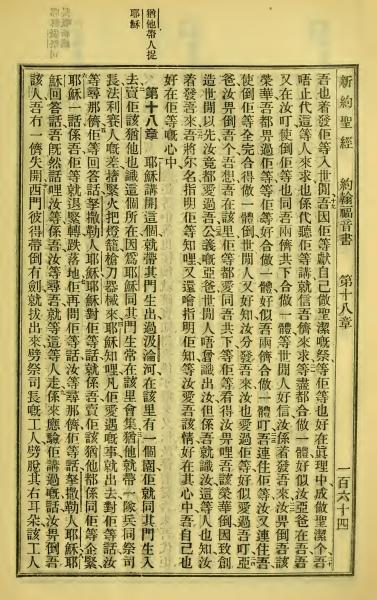 猶他帶人捉
耶穌
新約聖經 約翰福音書 第十八章 一百六十四
吾也着發佢等入世間吾因佢等獻自己做聖潔嘅祭等佢等也好在眞理中成做聖潔个吾
唔止代這等人來求也係代聽佢等講就信吾儕來求等盡都合做一體好似汝亞爸在吾
又在汝叮使倒佢等也同吾兩儕共下合做一體等世間人好信汝係着發吾來汝畀倒吾該
榮華吾都畀過佢等等佢等好合做一體好似吾兩儕合做一體叮吾連住佢等汝又連住吾
使倒佢等全完合得做一體倒世間人又好知汝分發吾來汝也愛過佢等好似愛過吾叮亞
爸汝畀倒吾个吾想吾在該里佢等都愛同吾共下等佢等看得汝畀哩吾該榮華倒因致創
造世間以先汝竟都愛過吾公義嘅亞爸世間人唔曾識出汝但係吾就識汝這等人也知汝
着發吾來吾將尔名指明佢等知哩又還噲指明佢知等汝愛吾該情好在其心中吾自己也
好在佢等嘅心中
第十八章 耶穌講開這個就帶其門生出過汲淪河在該里有一個園佢就同其門生入
去賣佢該猶他也識這個所在因爲耶穌同其門生常在該里會集猶他就帶一隊兵同祭司
長法利賽人嘅差擔緊火把燈籠槍刀器械來耶穌知哩凡佢愛遇嘅事就出去對佢等話汝
等尋那儕佢等回答話拏撒勒人耶穌耶穌對佢等話就係吾賣佢該猶他都係同佢等企緊
耶穌一話係吾佢等就退緊轉跌落地佢再問佢等話汝等尋那儕佢等話拏撒勒人耶穌耶
穌回答話吾旣然話哩汝等係吾汝等尋吾就等這等人走係來應驗佢講過嘅話汝畀倒吾
該人吾冇一儕失開西門彼得帶倒有劍就拔出來劈祭司長嘅工人劈脫其右耳朶該工人